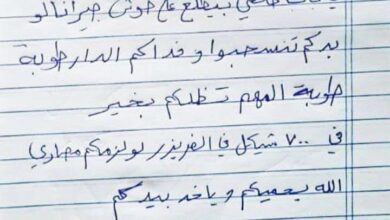 بيطلع ع حوش جيراننا لو
بدكم تنسحبوا وفداكم الدار طوبة
طوبة المهم تظلكم بخير
في ٧٠٠ شيكل في الفريزر لو لزمكم مصاري
الله يحميكم وياخد بيدكم